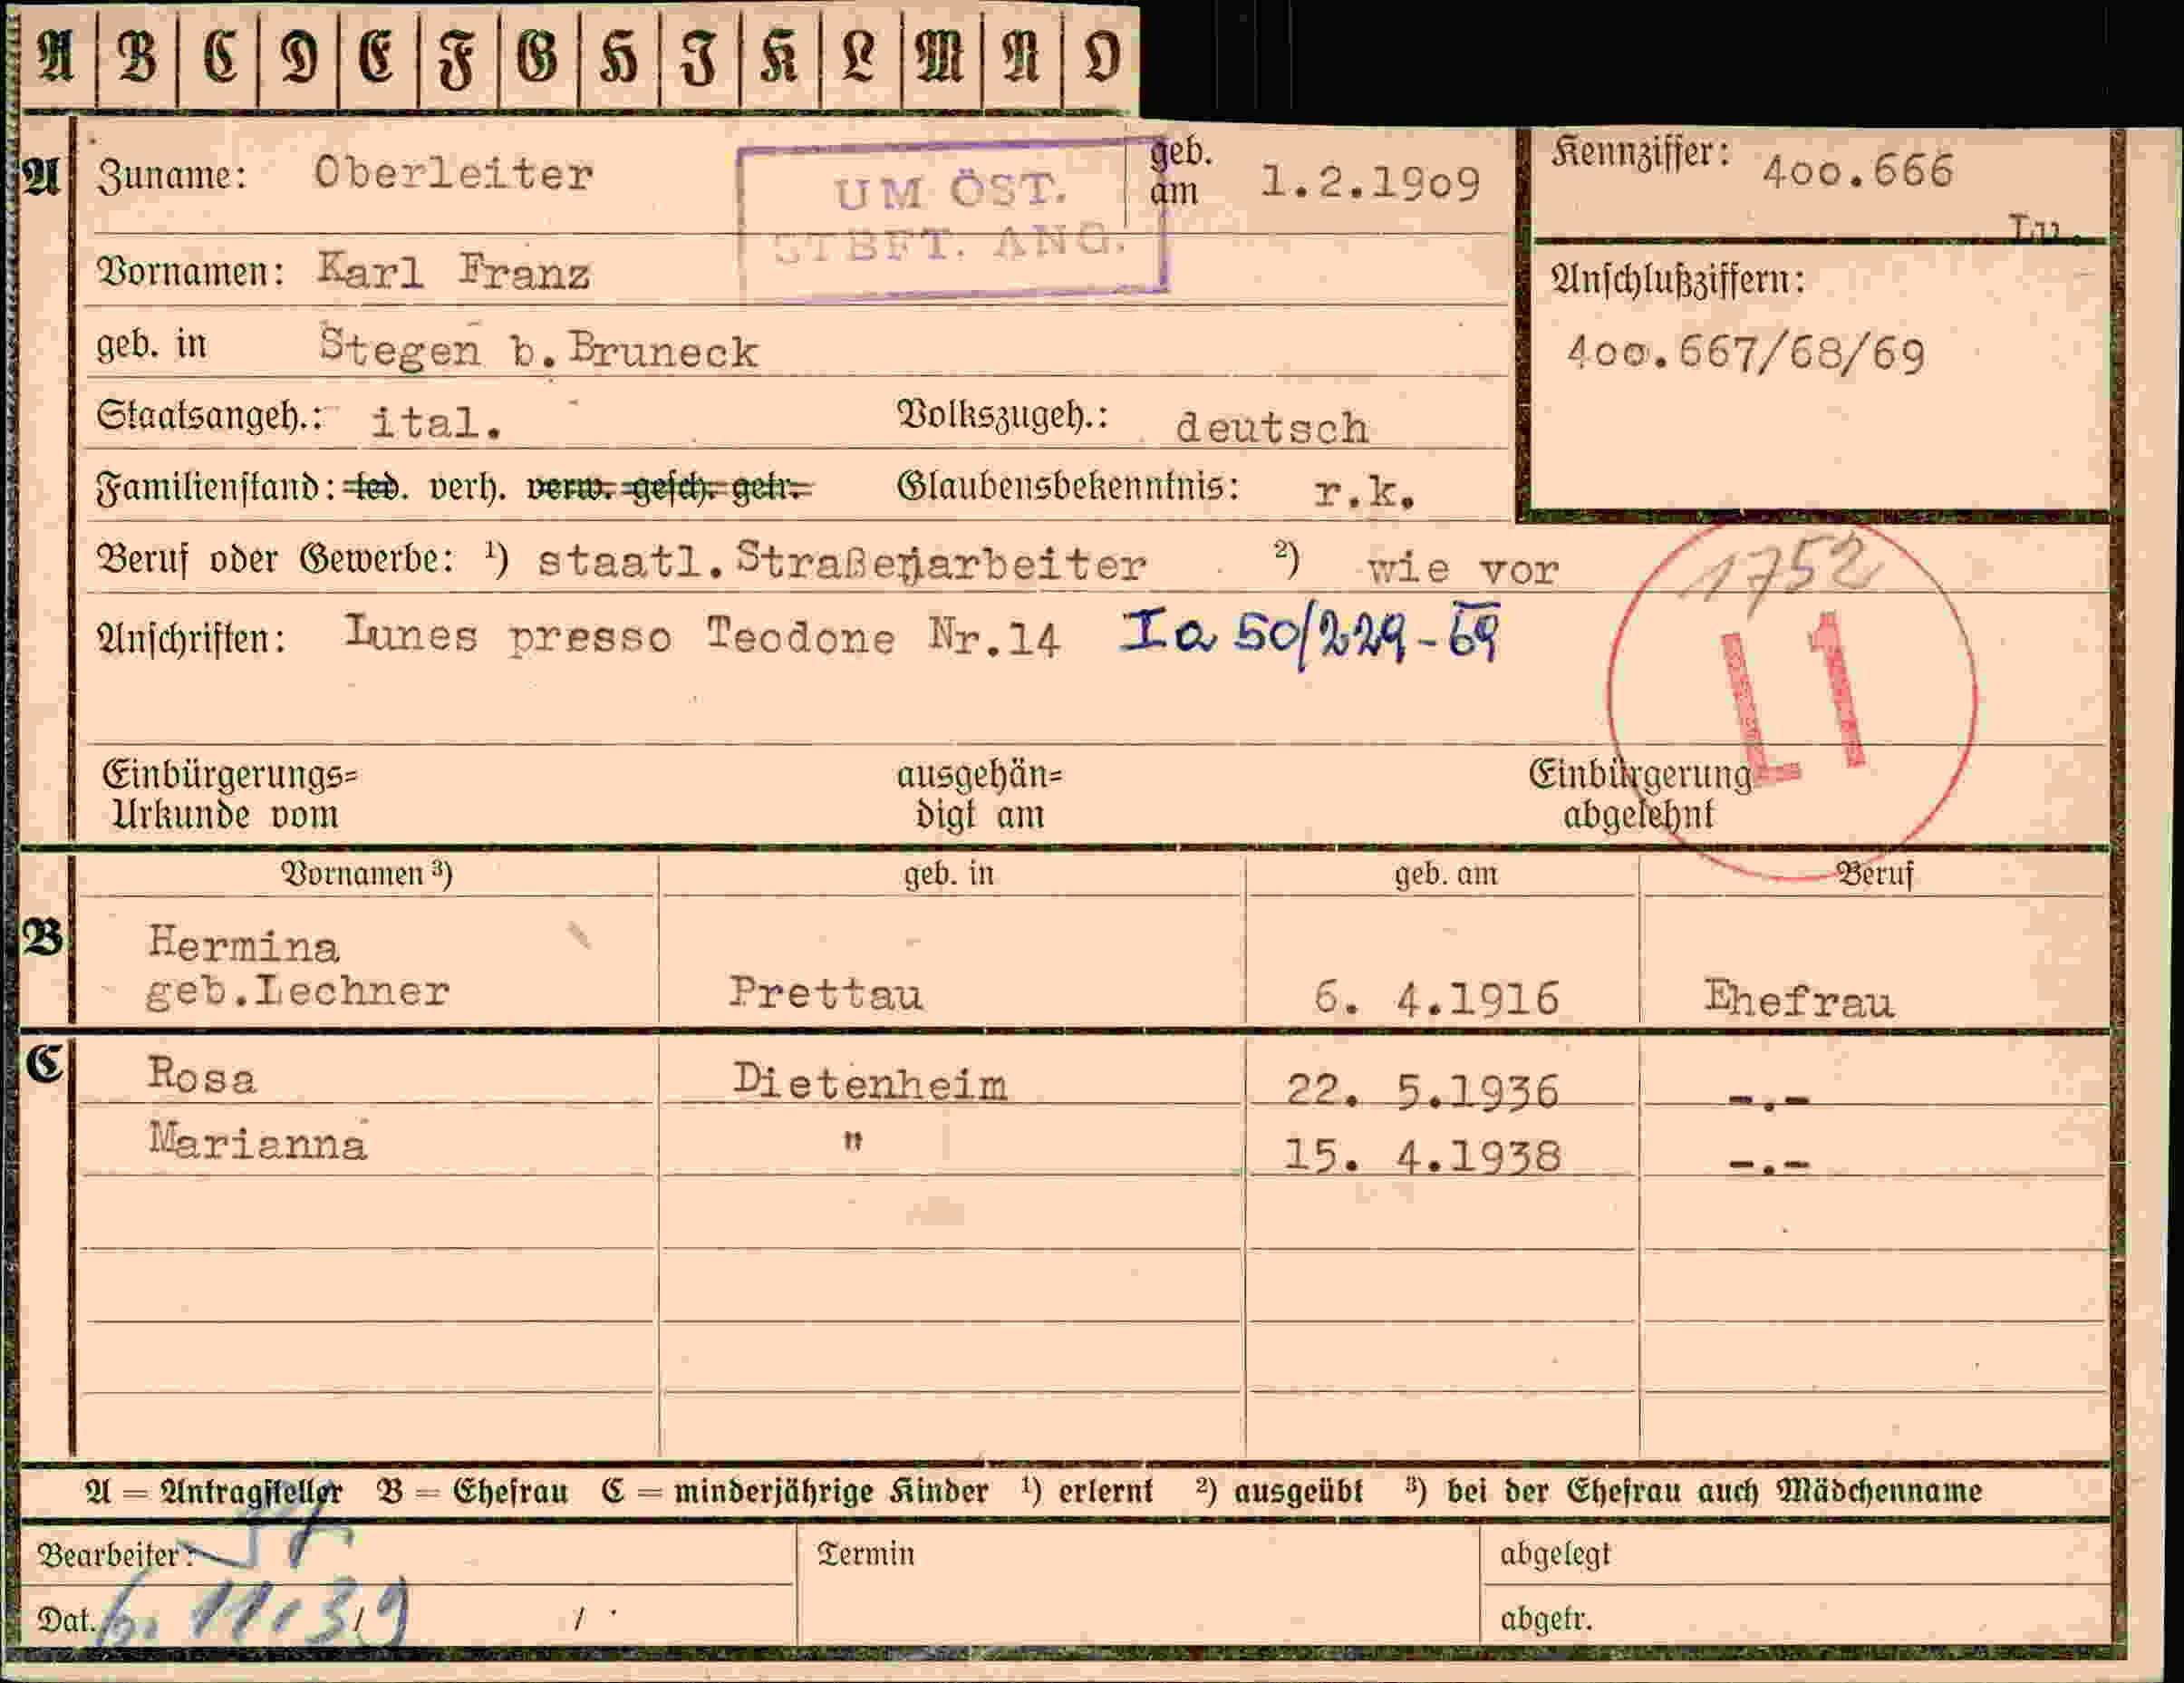 A B C D E F G H I K L M N O
A Zuname: Oberleiter geb. am 1.2.1909 Kennziffer: 400.666
Lu.
UM ÖST.
STBFT. ANG.
Vornamen: Karl Franz Anschlußziffern:
geb. in Stegen b. Bruneck 400.667/68/69
Staatsangeh.: ital. Volkszugeh.: deutsch
Familienstand: led. verh. verw. gesch. getr. Glaubensbekenntnis: r.k.
Beruf oder Gewerbe: ¹) staatl. Straßenarbeiter ²) wie vor 1752
Anschriften: Lunes presso Teodone Nr.14 Ia 50/229-69
L1
Einbürgerungs= ausgehän= Einbürgerung
Urkunde vom digt am abgelehnt
Vornamen ³) geb. in geb. am Beruf
B Hermina
geb. Lechner Prettau 6. 4.1916 Ehefrau
C Rosa Dietenheim 22. 5.1936 -.-
Marianna " 15. 4.1938 -.-
A = Antragsteller B = Ehefrau C = minderjährige Kinder ¹) erlernt ²) ausgeübt ³) bei der Ehefrau auch Mädchenname
Bearbeiter: Termin abgelegt
Dat. 11.39 / / abgetr.